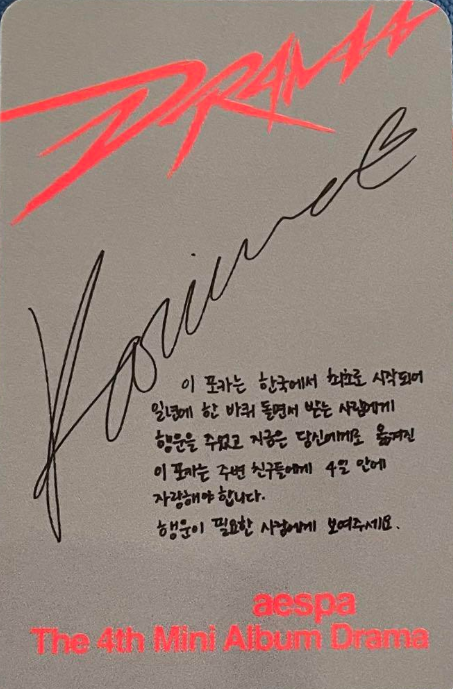 DRAMA
Karina
이 포카는 한국에서 최초로 시작되어
일년에 한 바퀴 돌면서 받는 사람에게
행운을 주었고 지금은 당신에게로 옮겨진
이 포카는 주변 친구들에게 4일 안에
자랑해야 합니다.
행운이 필요한 사람에게 보여주세요.
aespa
The 4th Mini Album Drama